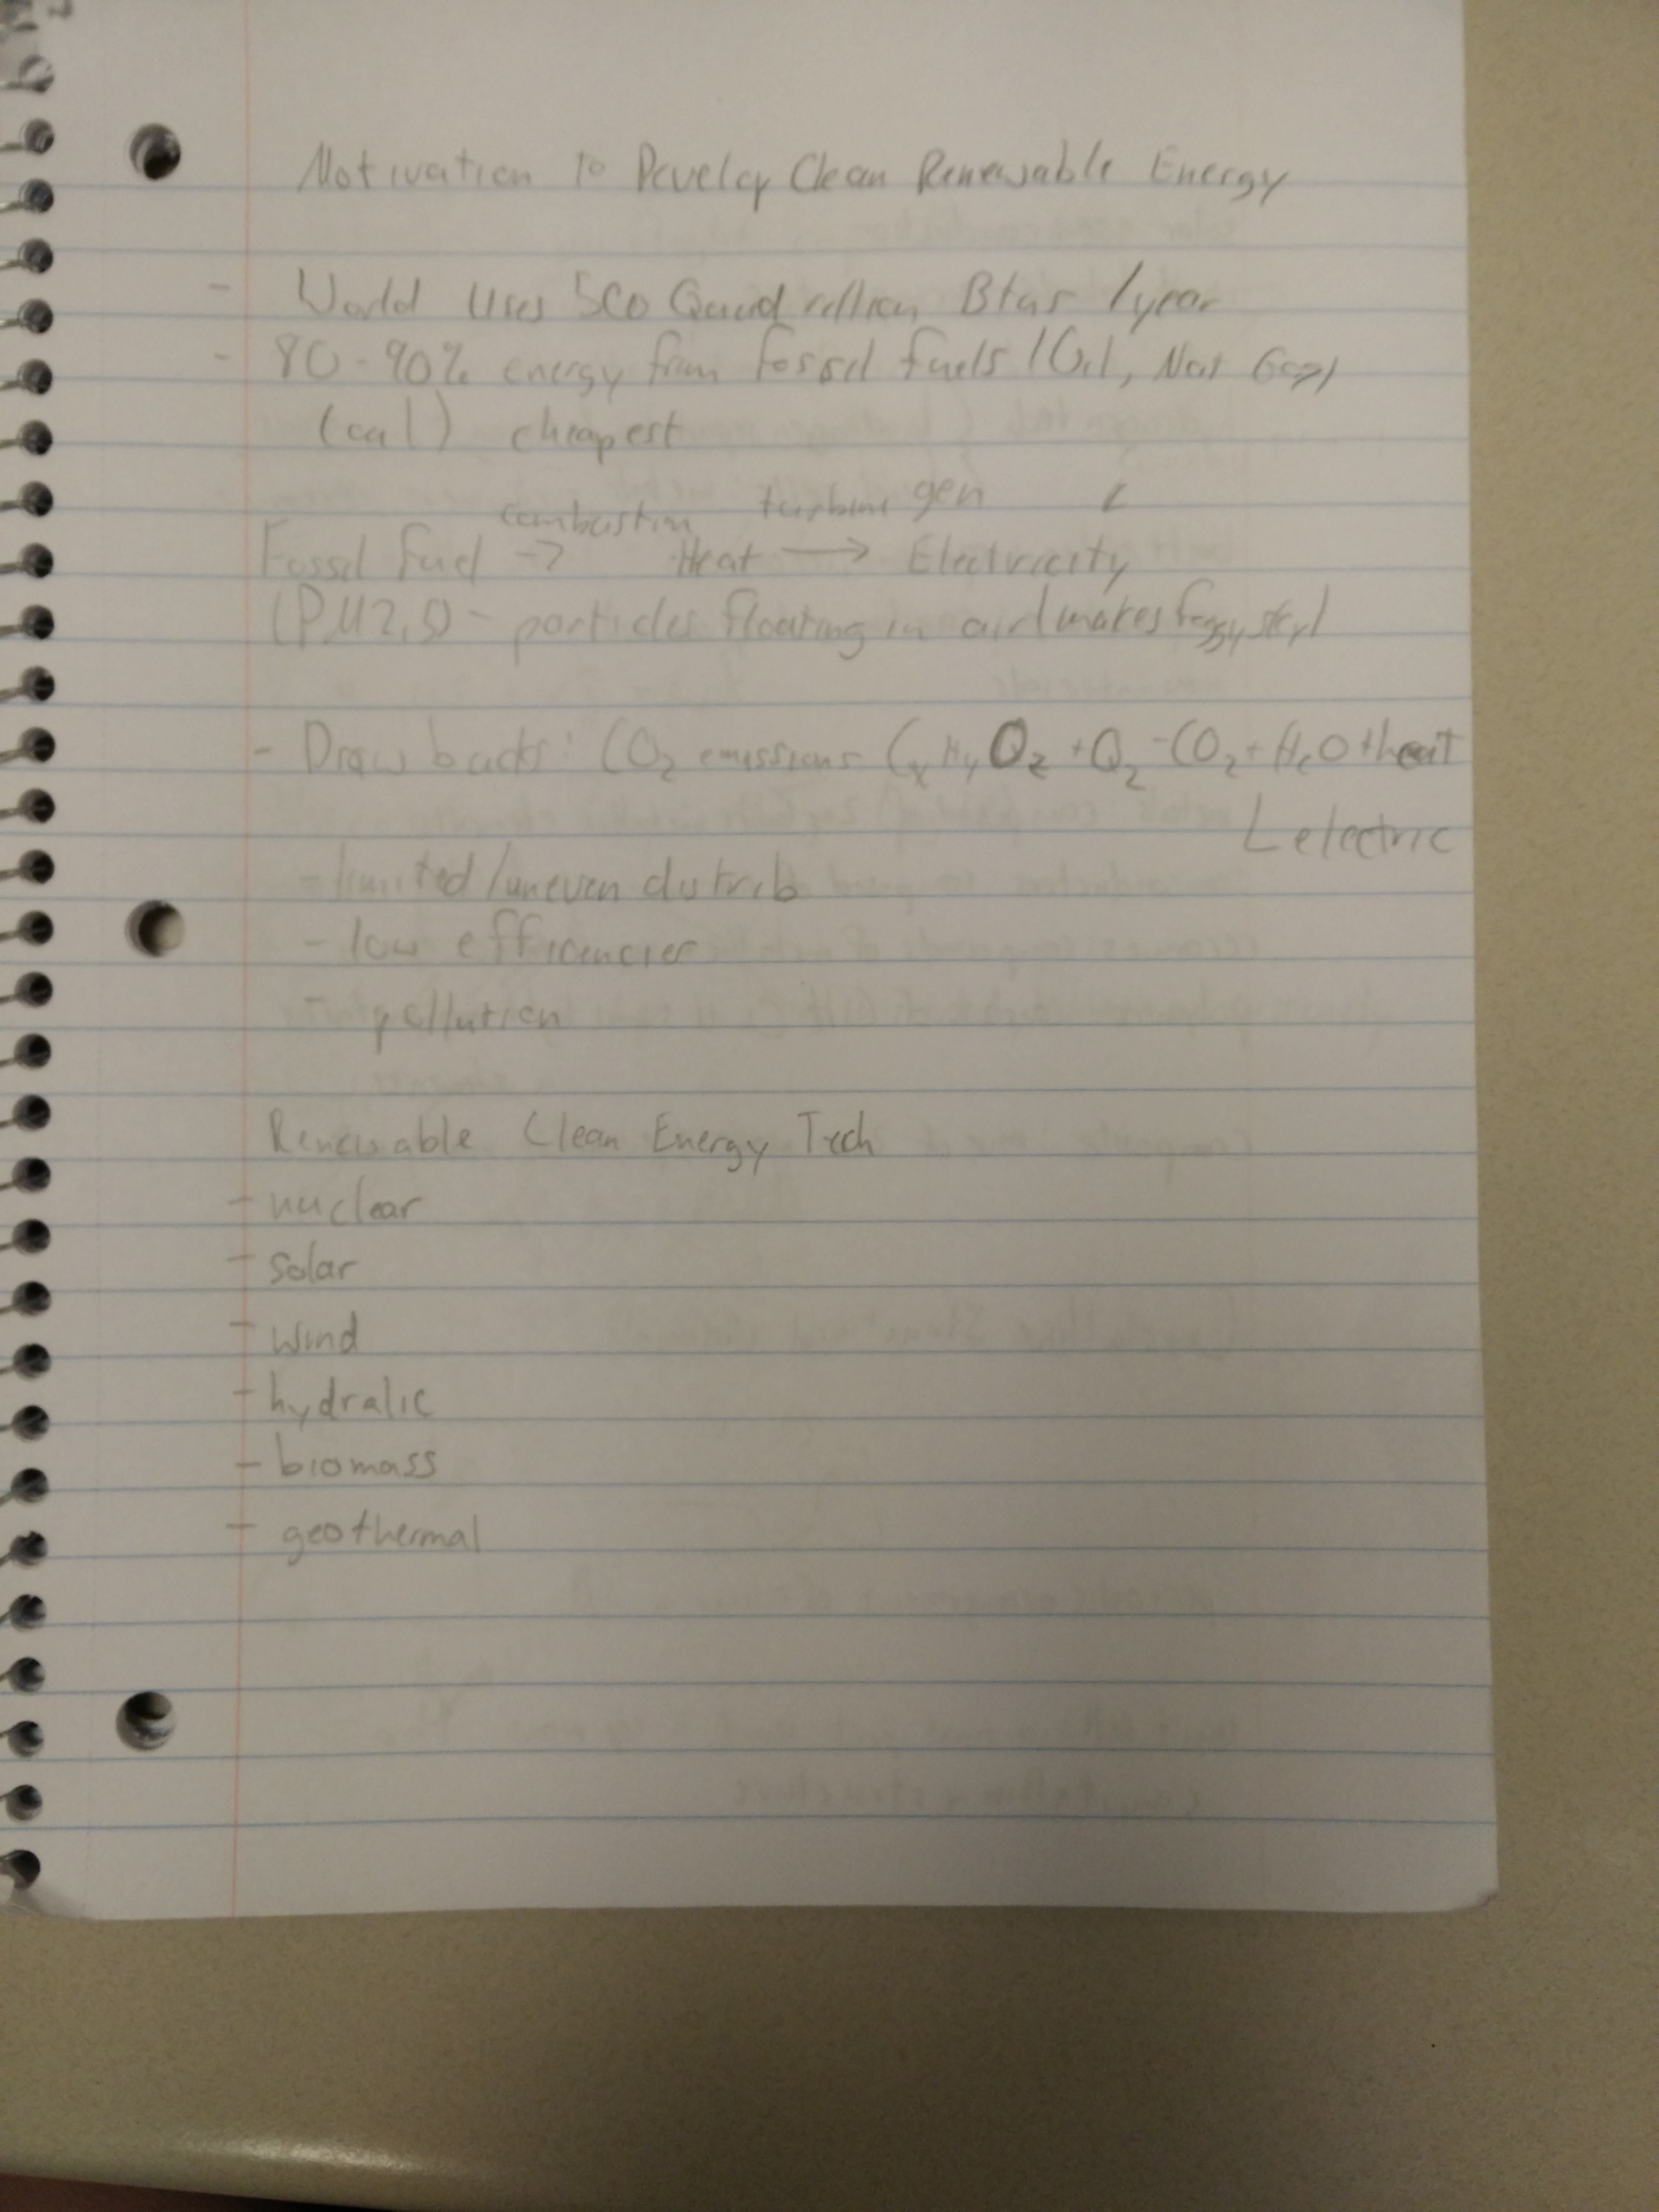 Motivation to Develop Clean Renewable Energy
- World Uses 500 Quadrillion Btus /year
- 80-90% energy from fossil fuels (Oil, Nat Gas)
(coal) cheapest
combustion turbine gen
Fossil Fuel → Heat → Electricity
(PM2.5) - particles floating in air (makes foggy sky)
- Drawbacks: CO2 emissions CxHyOz + O2 - CO2 + H2O + heat
L electric
- limited/uneven distrib
- low efficiencies
- pollution
Renewable Clean Energy Tech
- nuclear
- solar
- wind
- hydralic
- biomass
- geothermal